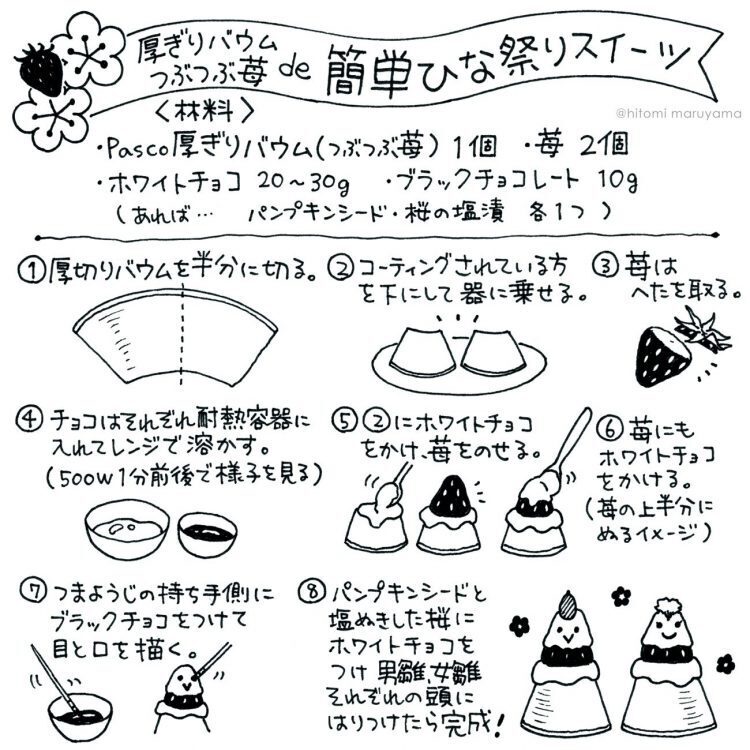 厚ぎりバウム
つぶつぶ苺 de 簡単ひな祭りスイーツ
@hitomi maruyama
〈材料〉
・Pasco厚ぎりバウム(つぶつぶ苺) 1個 ・苺 2個
・ホワイトチョコ 20〜30g ・ブラックチョコレート 10g
(あれば… パンプキンシード・桜の塩漬 各1つ)
①厚切りバウムを半分に切る。
②コーティングされている方
を下にして器に乗せる。
③苺は
へたを取る。
④チョコはそれぞれ耐熱容器に
入れてレンジで溶かす。
(500W1分前後で様子を見る)
⑤②にホワイトチョコ
をかけ、苺をのせる。
⑥苺にも
ホワイトチョコ
をかける。
(苺の上半分に
ぬるイメージ)
⑦つまようじの持ち手側に
ブラックチョコをつけて
目と口を描く。
⑧パンプキンシードと
塩ぬきした桜に
ホワイトチョコを
つけ男雛、女雛
それぞれの頭に
はりつけたら完成!